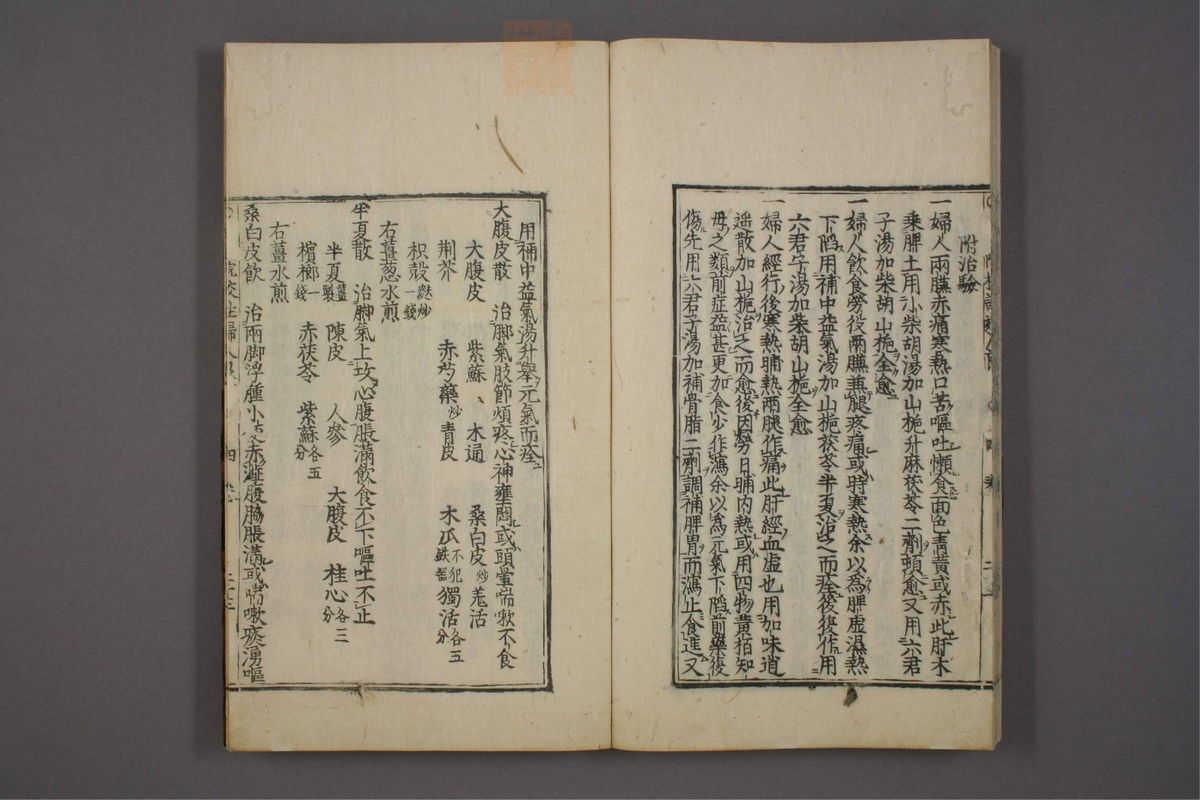 附治驗
一婦人兩臁赤痛寒熱口苦嘔吐懶食面色靑黃或赤此肝木
乘脾土用小柴胡湯加山梔升麻茯苓二劑頓愈又用六君
子湯加柴胡山梔全愈
一婦人飲食勞役兩臁兼腿疼痛或時寒熱余以爲脾虛濕熱
下陷用補中益氣湯加山梔茯苓半夏治之而痊後復作用
六君子湯加柴胡山梔全愈
一婦人經行後寒熱晡熱兩腿作痛此肝經血虛也用加味逍
遥散加山梔治之而愈後因勞日晡內熱或用四物黃栢知
母之類前症益甚更加食少作瀉余以爲元氣下陷前藥復
傷先用六君子湯加補骨脂二劑調補脾胃而瀉止食進又
用補中益氣湯升舉元氣而痊
大腹皮散 治脚氣肢節煩疼心神壅悶或頭暈喘嗽不食
大腹皮 紫蘇 木通 桑白皮炒 羌活
荆芥 赤芍藥炒 靑皮 木瓜不犯鉄器 獨活各五分
枳殼麩炒一錢
右薑葱水煎
半夏散 治脚氣上攻心腹脹滿飲食不下嘔吐不止
半夏薑製 陳皮 人參 大腹皮 桂心各三分
檳榔一錢 赤茯苓 紫蘇各五分
右薑水煎
桑白皮飲 治兩脚浮腫小便赤澁腹脇脹滿或喘嗽痰湧嘔